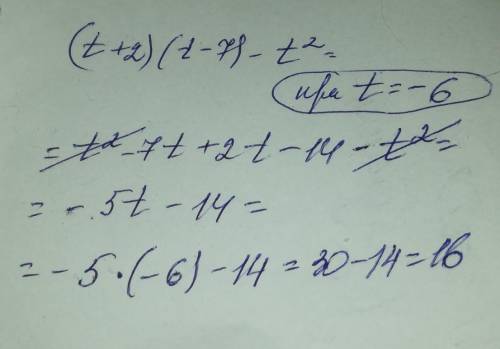 (t+2)(t-7)-t²=
при t=-6
=t²-7t+2t-14-t²=
=-5t-14=
=-5·(-6)-14=30-14=16